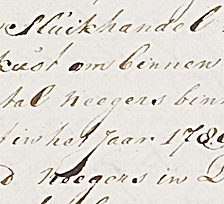 Sluikhandel
kust om binnen
tal neegers binn
in het Jaar 178
neegers in